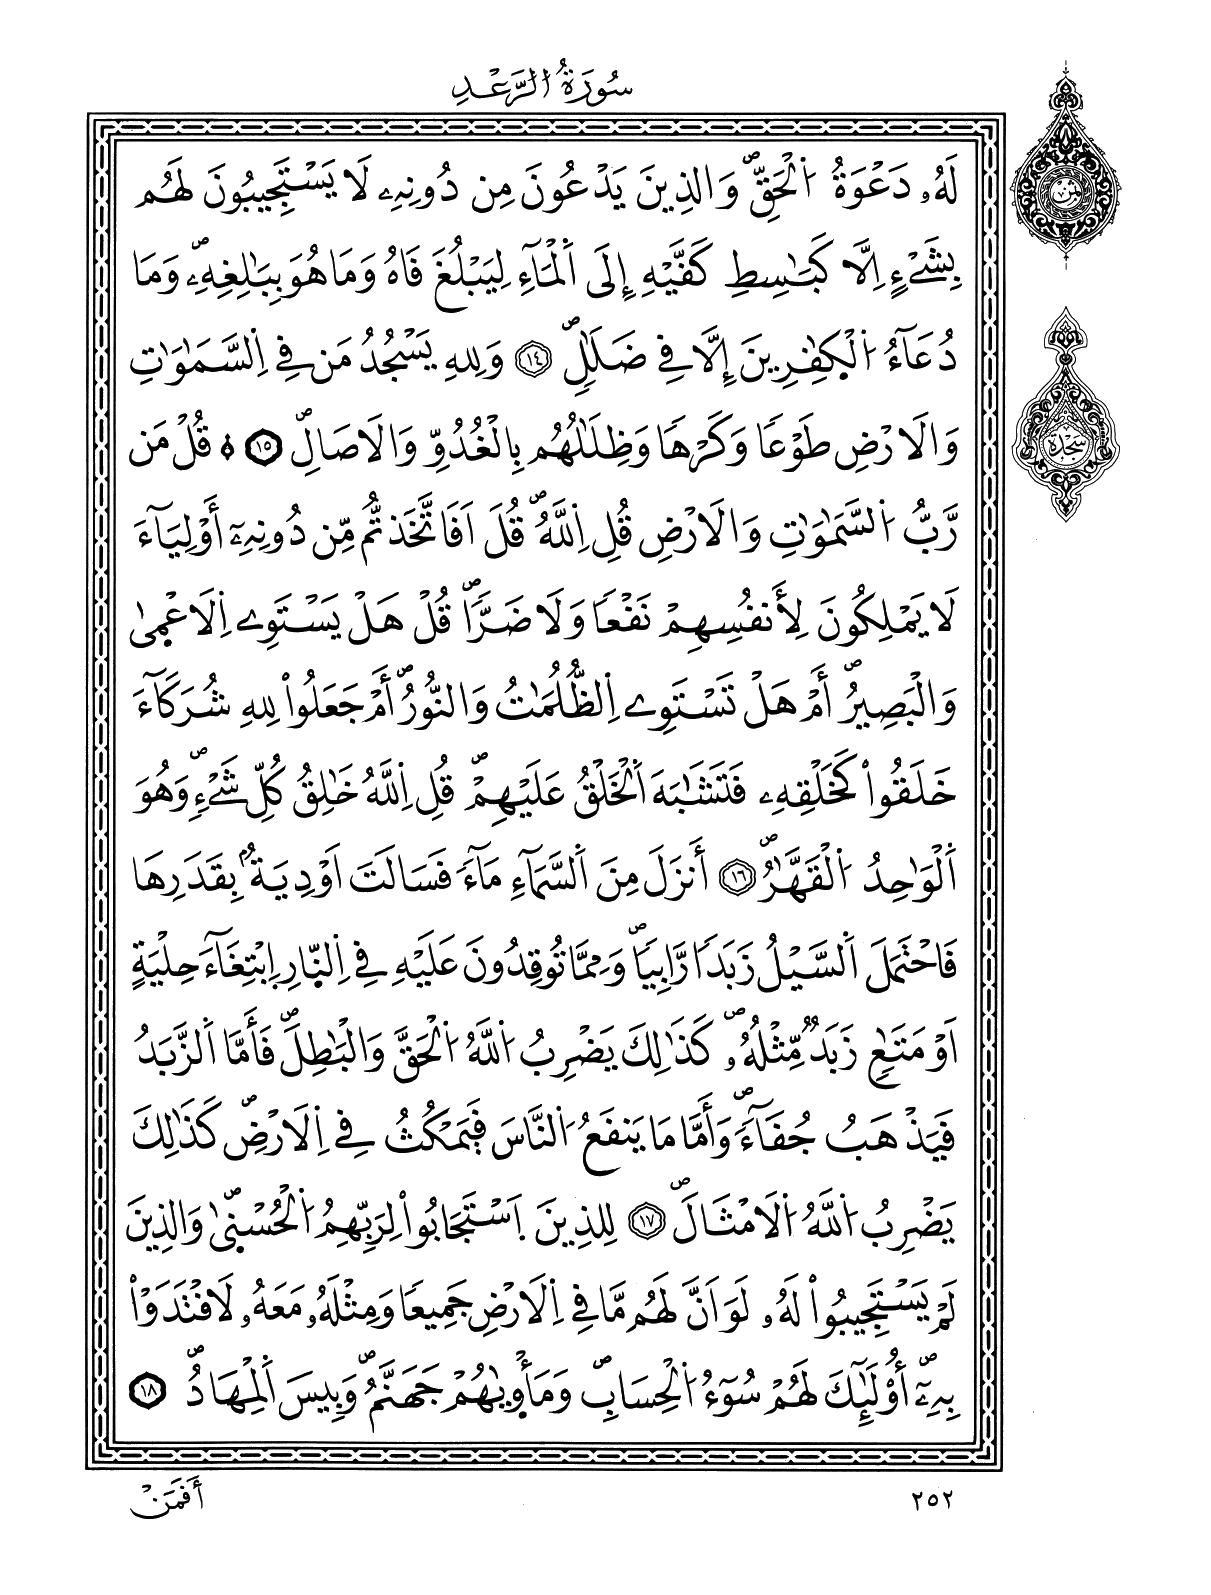 سُورَةُ الرَّعْدِ
ثمن
لَهُۥ دَعْوَةُ اُ۬لْحَقِّۖ وَالذِينَ يَدْعُونَ مِن دُونِهِۦ لَا يَسْتَجِيبُونَ لَهُم
بِشَےْءٍ اِلَّا كَبَٰسِطِ كَفَّيْهِ إِلَى اَ۬لْمَآءِ لِيَبْلُغَ فَاهُ وَمَا هُوَ بِبَٰلِغِهِۦۖ وَمَا
دُعَآءُ اُ۬لْكٰ۪فِرِينَ إِلَّا فِے ضَلَٰلٖۖ ١٤ وَلِلهِ يَسْجُدُ مَن فِے اِ۬لسَّمَٰوَٰتِ
سجدة
وَالَارْضِ طَوْعاٗ وَكَرْهاٗ وَظِلَٰلُهُم بِالْغُدُوِّ وَالَاصَالِۖ ١٥ ۞ قُلْ مَن
رَّبُّ اُ۬لسَّمَٰوَٰتِ وَالَارْضِ قُلِ اِ۬للَّهُۖ قُلَ اَفَاتَّخَذتُّم مِّن دُونِهِۦٓ أَوْلِيَآءَ
لَا يَمْلِكُونَ لِأَنفُسِهِمْ نَفْعاٗ وَلَا ضَرّاٗۖ قُلْ هَلْ يَسْتَوِے اِ۬لَاعْم۪ىٰ
وَالْبَصِيرُۖ أَمْ هَلْ تَسْتَوِے اِ۬لظُّلُمَٰتُ وَالنُّورُۖ أَمْ جَعَلُواْ لِلهِ شُرَكَآءَ
خَلَقُواْ كَخَلْقِهِۦ فَتَشَٰبَهَ اَ۬لْخَلْقُ عَلَيْهِمْۖ قُلِ اِ۬للَّهُ خَٰلِقُ كُلِّ شَےْءٖۖ وَهُوَ
اَ۬لْوَٰحِدُ اُ۬لْقَهَّٰرُۖ ١٦ أَنزَلَ مِنَ اَ۬لسَّمَآءِ مَآءٗ فَسَالَتَ اَوْدِيَةُۢ بِقَدَرِهَا
فَاحْتَمَلَ اَ۬لسَّيْلُ زَبَداٗ رَّابِياٗۖ وَمِمَّا تُوقِدُونَ عَلَيْهِ فِے اِ۬لنّ۪ارِ اِ۪بْتِغَآءَ حِلْيَةٍ
اَوْ مَتَٰعٖ زَبَدٞ مِّثْلُهُۥۖ كَذَٰلِكَ يَضْرِبُ اُ۬للَّهُ اُ۬لْحَقَّ وَالْبَٰطِلَۖ فَأَمَّا اَ۬لزَّبَدُ
فَيَذْهَبُ جُفَآءٗۖ وَأَمَّا مَا يَنفَعُ اُ۬لنَّاسَ فَيَمْكُثُ فِے اِ۬لَارْضِۖ كَذَٰلِكَ
يَضْرِبُ اُ۬للَّهُ اُ۬لَامْثَالَۖ ١٧ لِلذِينَ اَ۪سْتَجَابُواْ لِرَبِّهِمُ اُ۬لْحُسْن۪ىٰۖ وَالذِينَ
لَمْ يَسْتَجِيبُواْ لَهُۥ لَوَ اَنَّ لَهُم مَّا فِے اِ۬لَارْضِ جَمِيعاٗ وَمِثْلَهُۥ مَعَهُۥ لَافْتَدَوْاْ
بِهِۦٓۖ أُوْلَٰٓئِكَ لَهُمْ سُوٓءُ اُ۬لْحِسَابِۖ وَمَأْو۪يٰهُمْ جَهَنَّمُۖ وَبِيسَ اَ۬لْمِهَادُۖ ١٨
٢٥٢
أَفَمَنْ